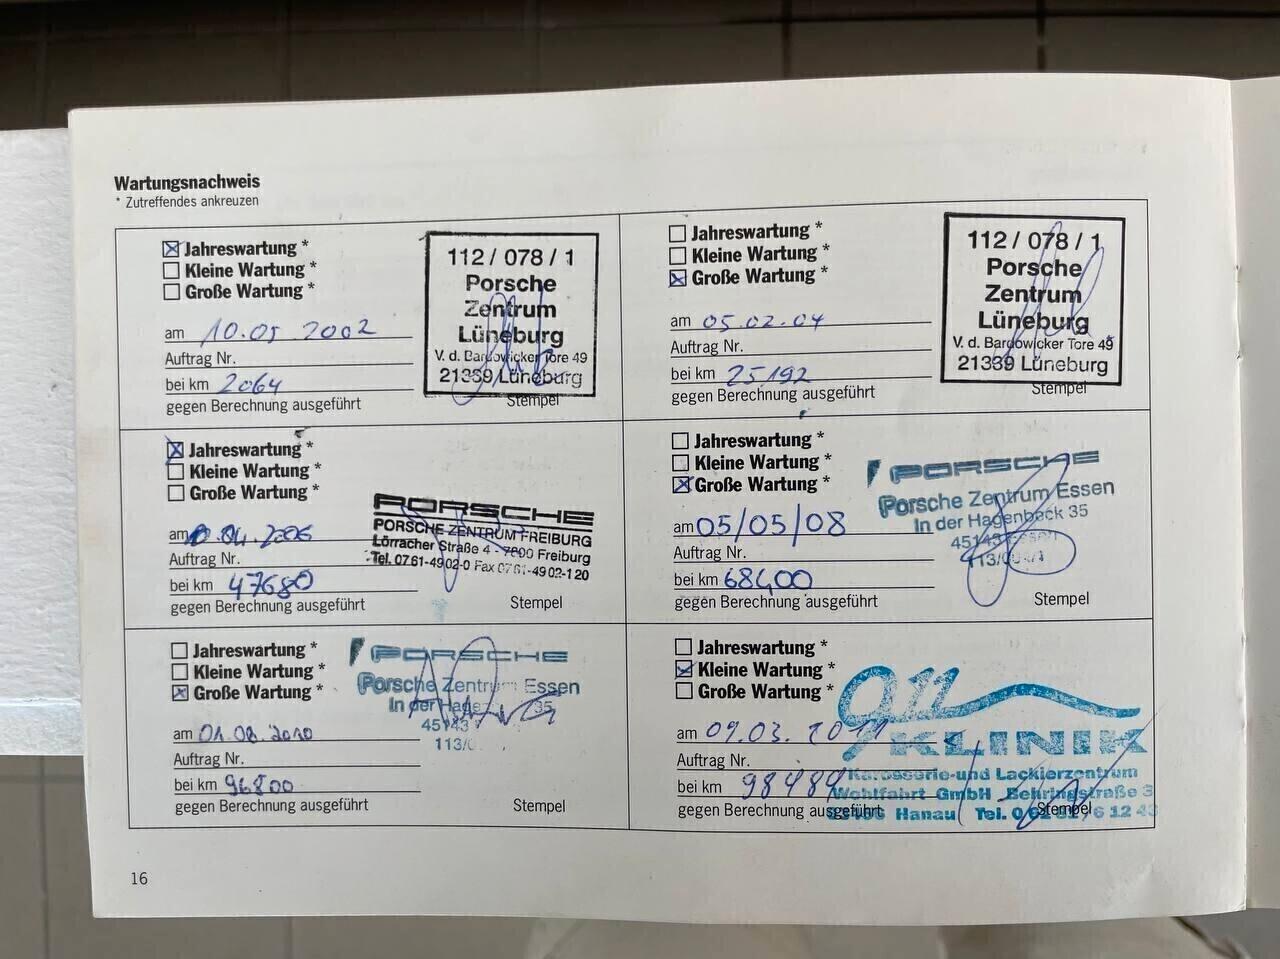 Wartungsnachweis
* Zutreffendes ankreuzen
Jahreswartung *
Kleine Wartung *
Große Wartung *
am 10.05 2002
Auftrag Nr.
bei km 2064
gegen Berechnung ausgeführt
112 / 078 / 1
Porsche
Zentrum
Lüneburg
V. d. Bardowicker Tore 49
21339 Lüneburg
Stempel
Jahreswartung *
Kleine Wartung *
Große Wartung *
am 05.02.04
Auftrag Nr.
bei km 25192
gegen Berechnung ausgeführt
112 / 078 / 1
Porsche
Zentrum
Lüneburg
V. d. Bardowicker Tore 49
21339 Lüneburg
Stempel
Jahreswartung *
Kleine Wartung *
Große Wartung *
am .04.2006
Auftrag Nr.
bei km 47680
gegen Berechnung ausgeführt
PORSCHE
PORSCHE ZENTRUM FREIBURG
Lörracher Straße 4 - 7800 Freiburg
Tel. 0761-4902-0 Fax 0761-4902-120
Stempel
Jahreswartung *
Kleine Wartung *
Große Wartung *
am 05/05/08
Auftrag Nr.
bei km 68400
gegen Berechnung ausgeführt
PORSCHE
Porsche Zentrum Essen
In der Hagenbeck 35
45143 Essen
Stempel
Jahreswartung *
Kleine Wartung *
Große Wartung *
am 01.08.2010
Auftrag Nr.
bei km 96800
gegen Berechnung ausgeführt
PORSCHE
Porsche Zentrum Essen
In der 35
45143
113/
Stempel
Jahreswartung *
Kleine Wartung *
Große Wartung *
am 09.03. 2011
Auftrag Nr.
bei km 98484
gegen Berechnung ausgeführt
911
KLINIK
Karosserie-und Lackierzentrum
Wohlfahrt GmbH Behringstraße 3
Hanau Tel.
Stempel
16